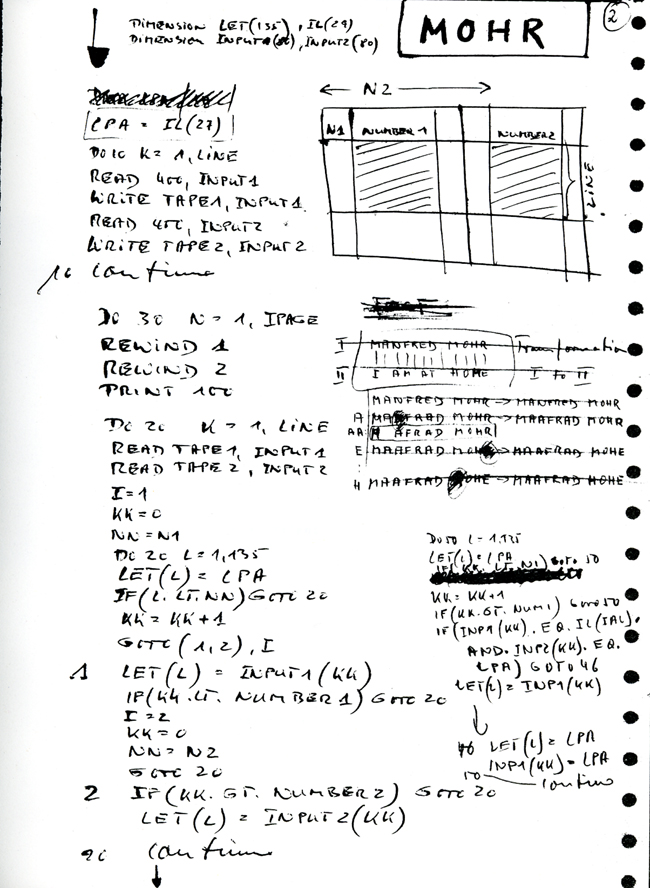 DIMENSION LET(135), IL(29)
DIMENSION INPUT1(80), INPUT2(80)
MOHR
2
LPA = IL(27)
DO 10 K = 1, LINE
READ 400, INPUT1
WRITE TAPE1, INPUT1
READ 400, INPUT2
WRITE TAPE2, INPUT2
10 continue
N2
N1 NUMBER1 NUMBER2
LINE
DO 30 N = 1, IPAGE
REWIND 1
REWIND 2
PRINT 100
DO 20 K = 1, LINE
READ TAPE1, INPUT1
READ TAPE2, INPUT2
I = 1
KK = 0
NN = N1
DO 20 L = 1,135
LET(L) = LPA
IF(L.LT.NN) GOTO 20
KK = KK+1
GOTO (1,2), I
1 LET(L) = INPUT1(KK)
IF(KK.LT. NUMBER1) GOTO 20
I = 2
KK = 0
NN = N2
GOTO 20
2 IF(KK.GT. NUMBER2) GOTO 20
LET(L) = INPUT2(KK)
20 continue
I MANFRED MOHR Transformation
II I AM AT HOME I to II
MANFRED MOHR → MANFRED MOHR
A MAAFRAD MOHR → MAAFRAD MOHR
AA A AFRAD MOHR
E MAAFRAD MOHE → MAAFRAD MOHE
H MAAFRAD HOHE → MAAFRAD HOHE
DO 50 L = 1,135
LET(L) = LPA
KK = KK+1
IF(KK.GT. NUM1) GOTO 50
IF(INP1(KK).EQ.IL(IAL).
AND.INP2(KK).EQ.
LPA) GOTO 46
LET(L) = INP1(KK)
46 LET(L) = LPA
INP1(KK) = LPA
50 continue